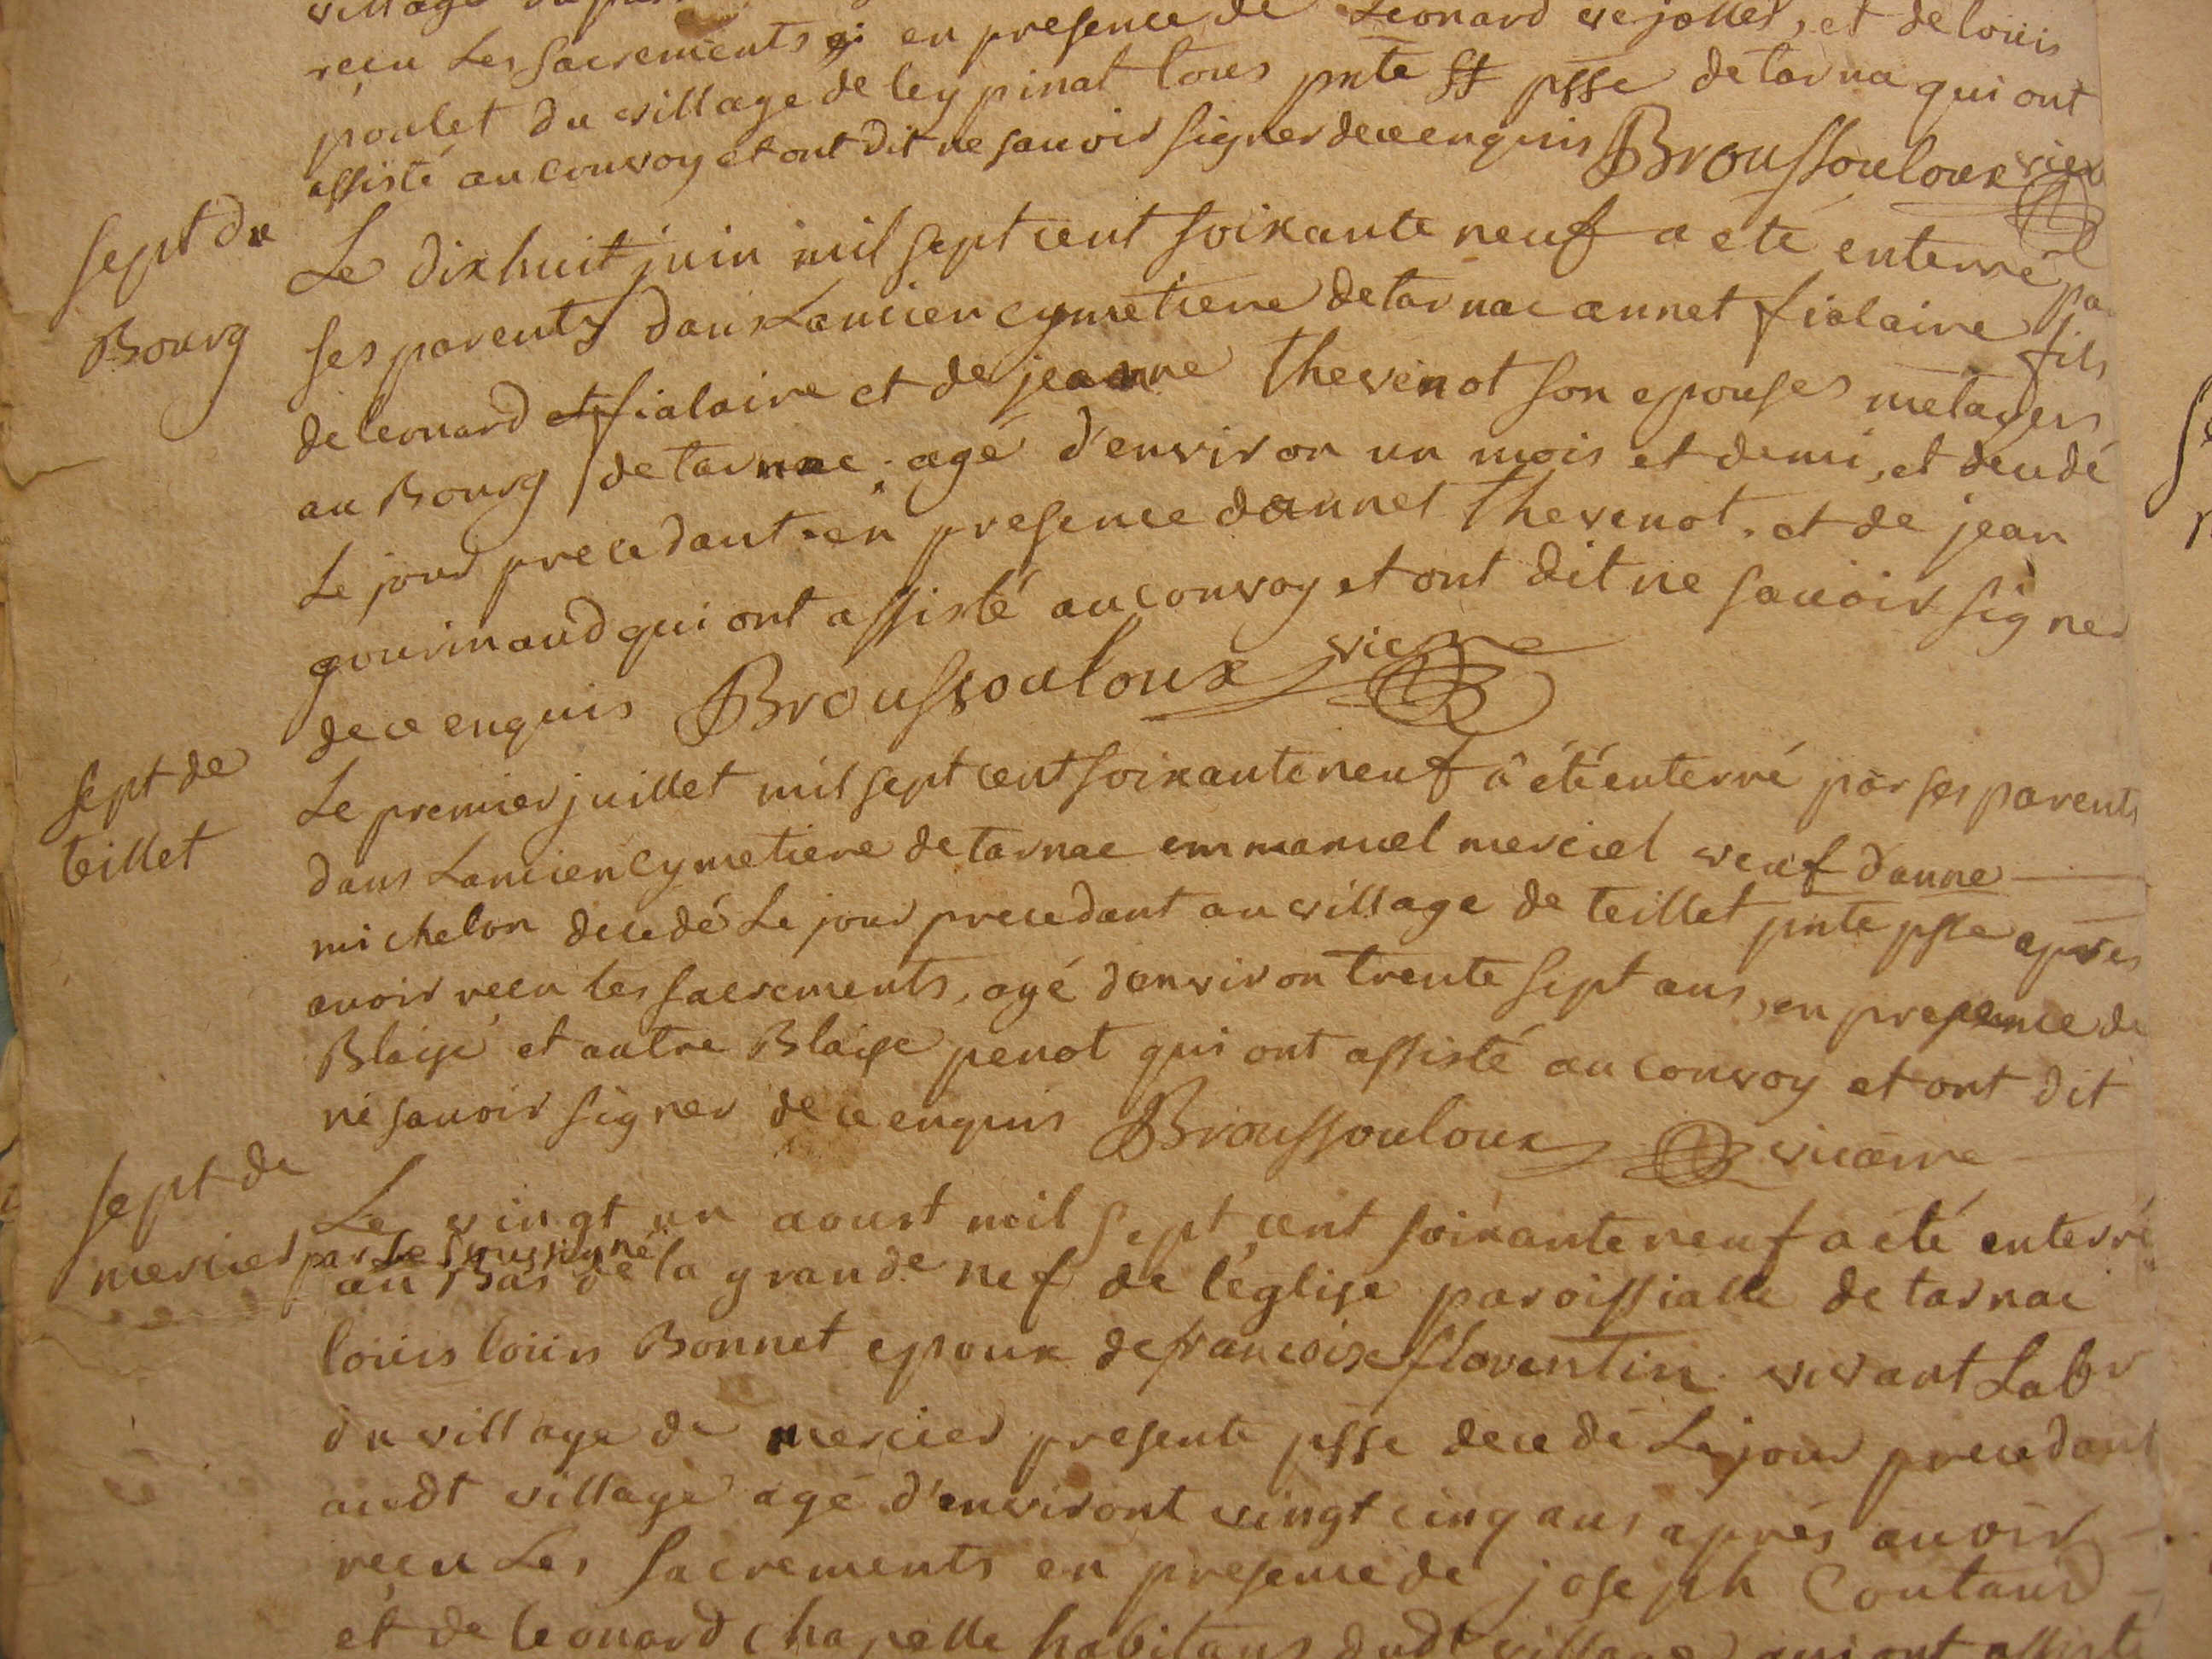 village du
reçu Les sacrements en presence de Leonard vejolles, et de loüis
poulet du village de leypinat tous pnte psse de tarnac qui ont
assisté au convoy et ont dit ne sauoir signer de ce enquis Broussouloux vice
sept du
Bourg
Le dixhuit juin mil sept cent soixante neuf a eté enterré pa
ses parents dans Lancien cymetiere de tarnac annet fialaire fils
de leonard et fialaire et de jeanne thevenot son epouse metayers
au Bourg de tarnac agé d'environ un mois et demi, et decedé
Le jour precedant en presence dannet thevenot. et de jean
gourinaud qui ont assisté au convoy et ont dit ne sauoir signer
de ce enquis Broussouloux vicre
sept de
teillet
Le premier juillet mil sept cent soixante neuf â été enterré par ses parents
dans Lancien cymetiere de tarnac emmanuel merciel veuf danne
michelon decedé Le jour precedant au village de teillet pnte psse apres
avoir reçu les sacrements, agé denviron trente sept ans, en presence de
Blaise et autre Blaise penot qui ont assisté au convoy et ont dit
ne sauoir signer de ce enquis Broussouloux vicaire
sept de
mercier
Le vingt un aoust mil sept cent soixante neuf a eté enterré
par Le soussigné
au Bas de la grande nef de l'église paroissialle de tarnac
loüis loüis Bonnet epoux de francoise florentin vivant Labr
du village de mercier presente psse decedé Le jour precedant
audt village agé d'environt vingt cinq ans aprés auoir
reçu Les sacrements en presence de joseph Coutaud
et de leonard chapelle habitans dudt village qui ont assisté